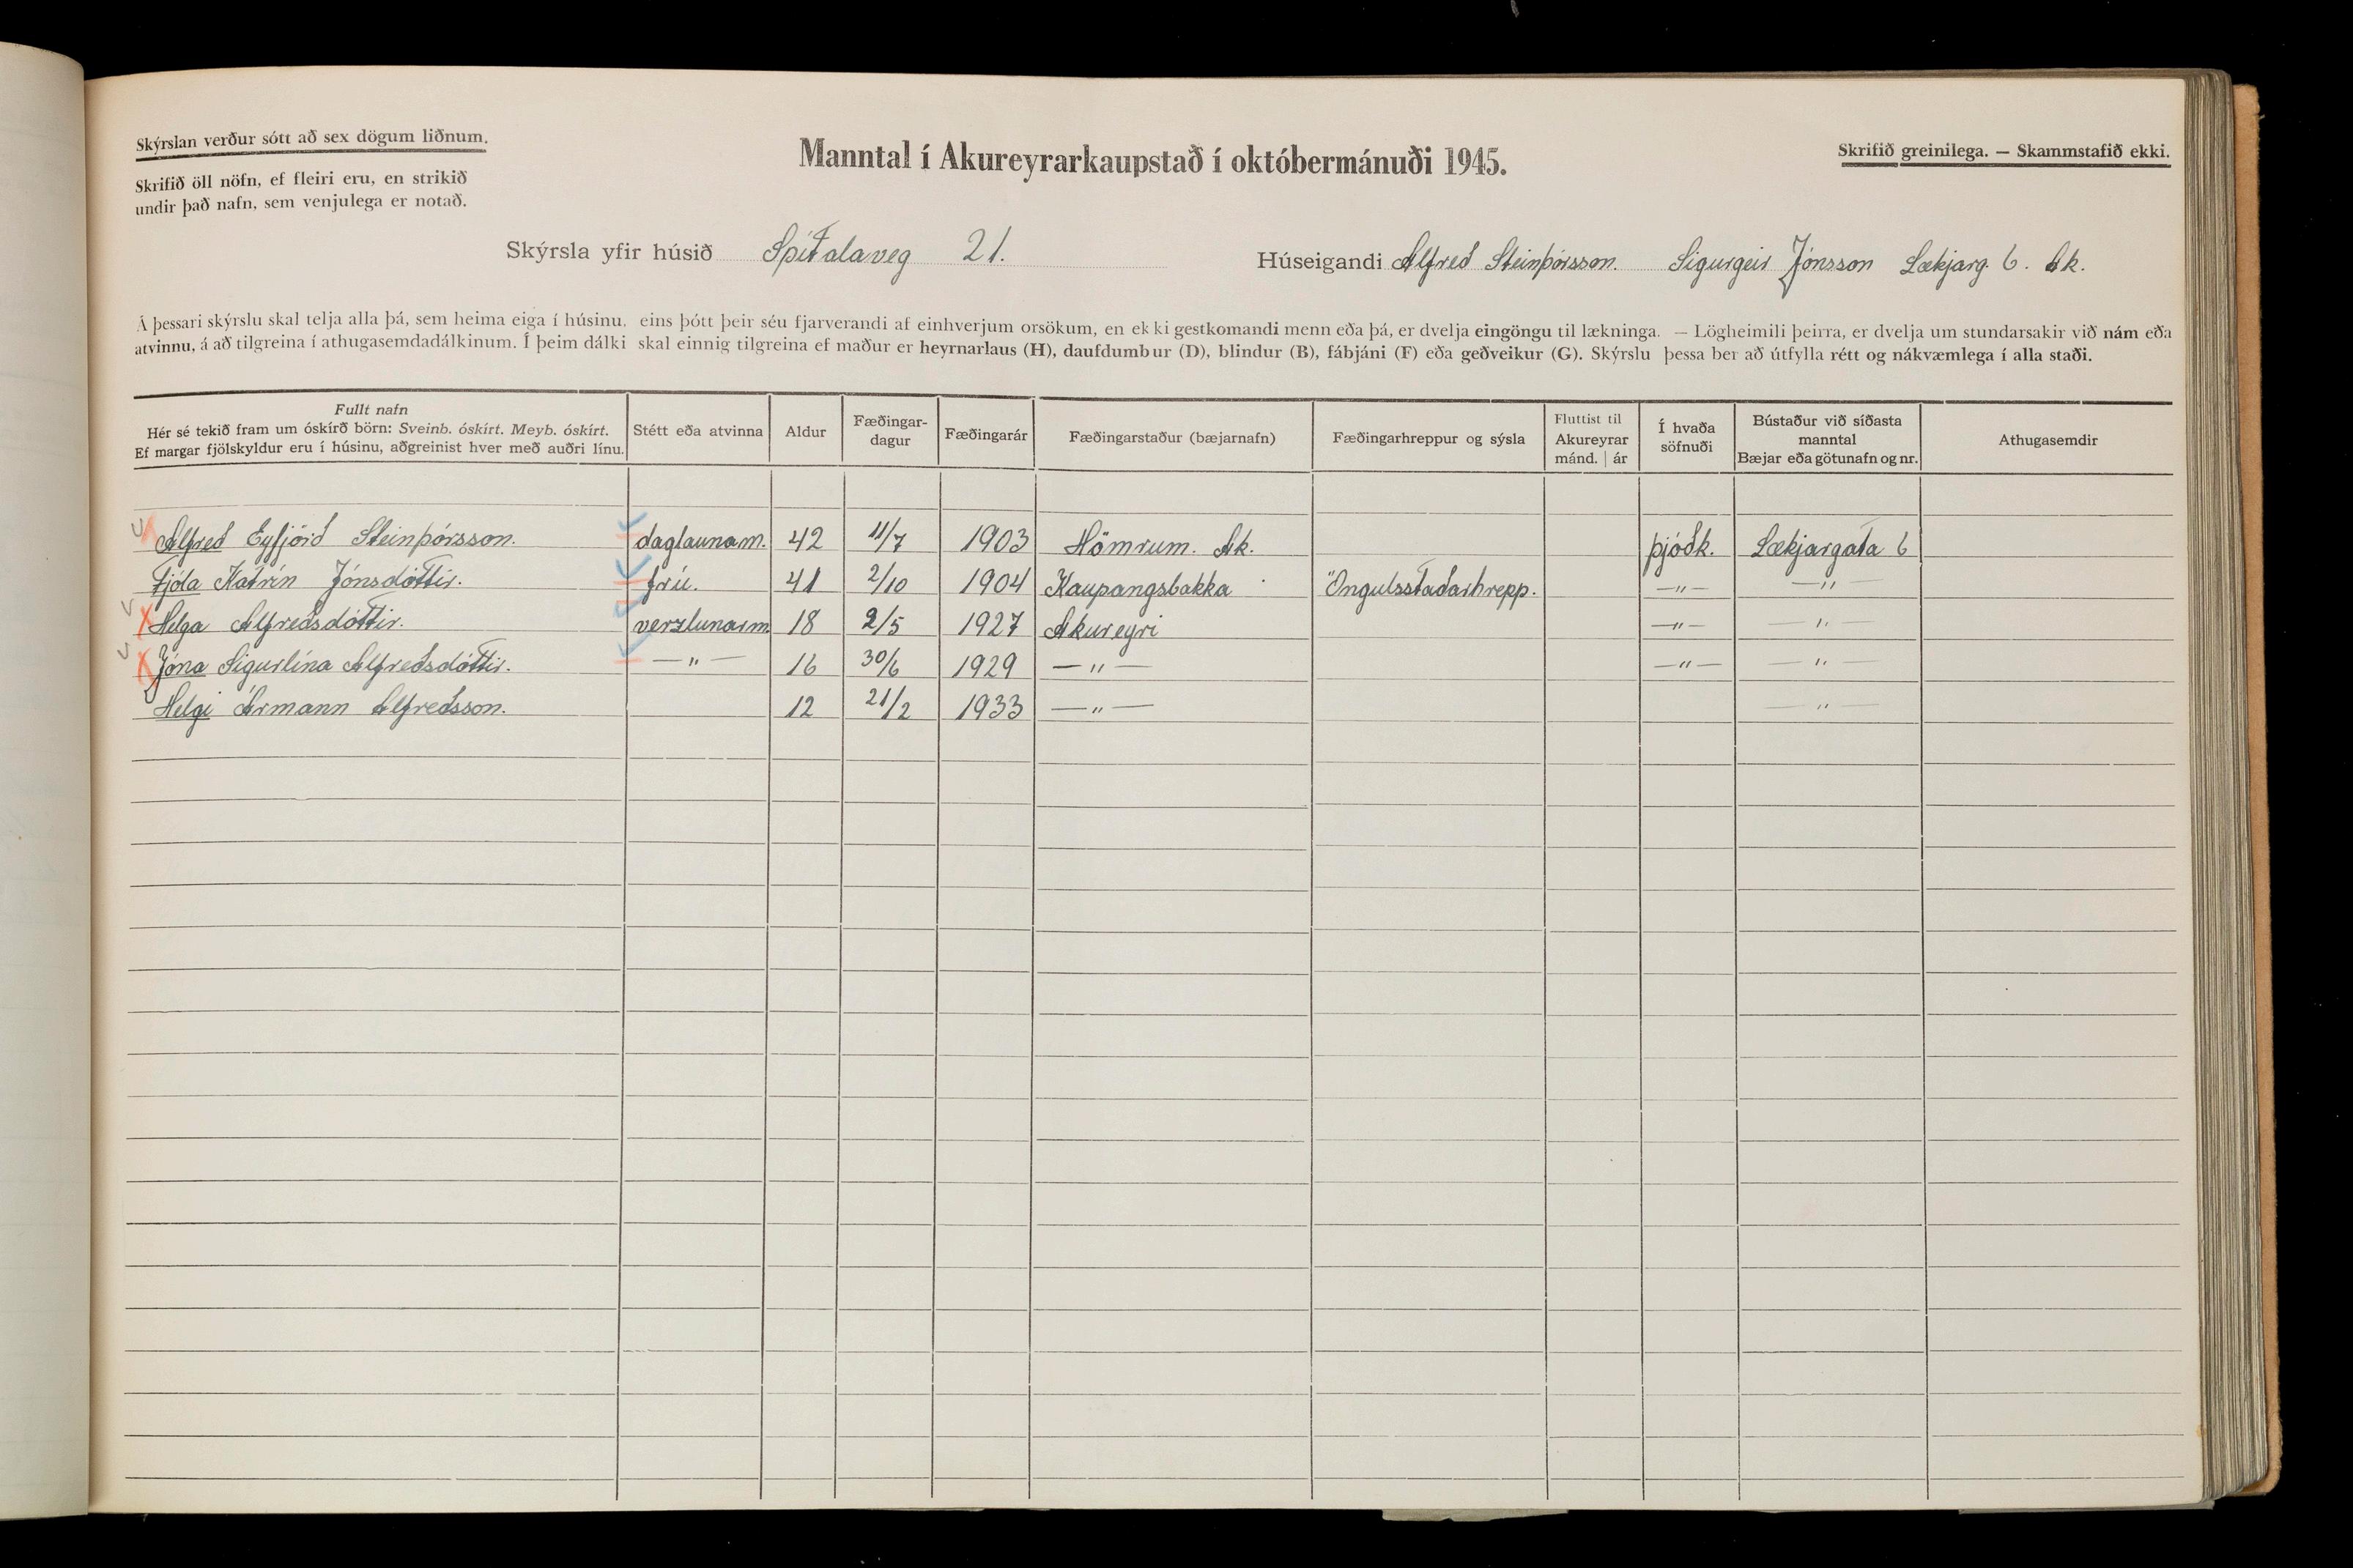 Skýrslan verður sótt að sex dögum liðnum.
Skrifið öll nöfn, ef fleiri eru, en strikið
undir það nafn, sem venjulega er notað.
Manntal í Akureyrarkaupstað í októbermánuði 1945.
Skrifið greinilega. — Skammstafið ekki.
Skýrsla yfir húsið Spítalaveg 21.
Húseigandi Alfred Steinþórsson. Sigurgeir Jónsson Lækjarg. 6. Ak.
Á þessari skýrslu skal telja alla þá, sem heima eiga í húsinu, eins þótt þeir séu fjarverandi af einhverjum orsökum, en ekki gestkomandi menn eða þá, er dvelja eingöngu til lækninga. — Lögheimili þeirra, er dvelja um stundarsakir við nám eða
atvinnu, á að tilgreina í athugasemdadálkinum. Í þeim dálki skal einnig tilgreina ef maður er heyrnarlaus (H), daufdumbur (D), blindur (B), fábjáni (F) eða geðveikur (G). Skýrslu þessa ber að útfylla rétt og nákvæmlega í alla staði.
Fullt nafn
Hér sé tekið fram um óskírð börn: Sveinb. óskírt. Meyb. óskírt.
Ef margar fjölskyldur eru í húsinu, aðgreinist hver með auðri línu.
Stétt eða atvinna
Aldur
Fæðingar-
dagur
Fæðingarár
Fæðingarstaður (bæjarnafn)
Fæðingarhreppur og sýsla
Fluttist til
Akureyrar
mánd. | ár
Í hvaða
söfnuði
Bústaður við síðasta
manntal
Bæjar eða götunafn og nr.
Athugasemdir
Alfred Eyfjörd Steinþórsson. daglaunam. 42 11/7 1903 Hömrum. Ak. þjóðk. Lækjargata 6
Fjóla Katrín Jónsdóttir. frú. 41 2/10 1904 Kaupangsbakka Öngulsstaðarhrepp. —"— —"—
Helga Alfredsdóttir. verzlunarm. 18 2/5 1927 Akureyri —"— —"—
Jóna Sigurlína Alfredsdóttir. —"— 16 30/6 1929 —"— —"— —"—
Helgi Ármann Alfredsson. 12 21/2 1933 —"— —"—